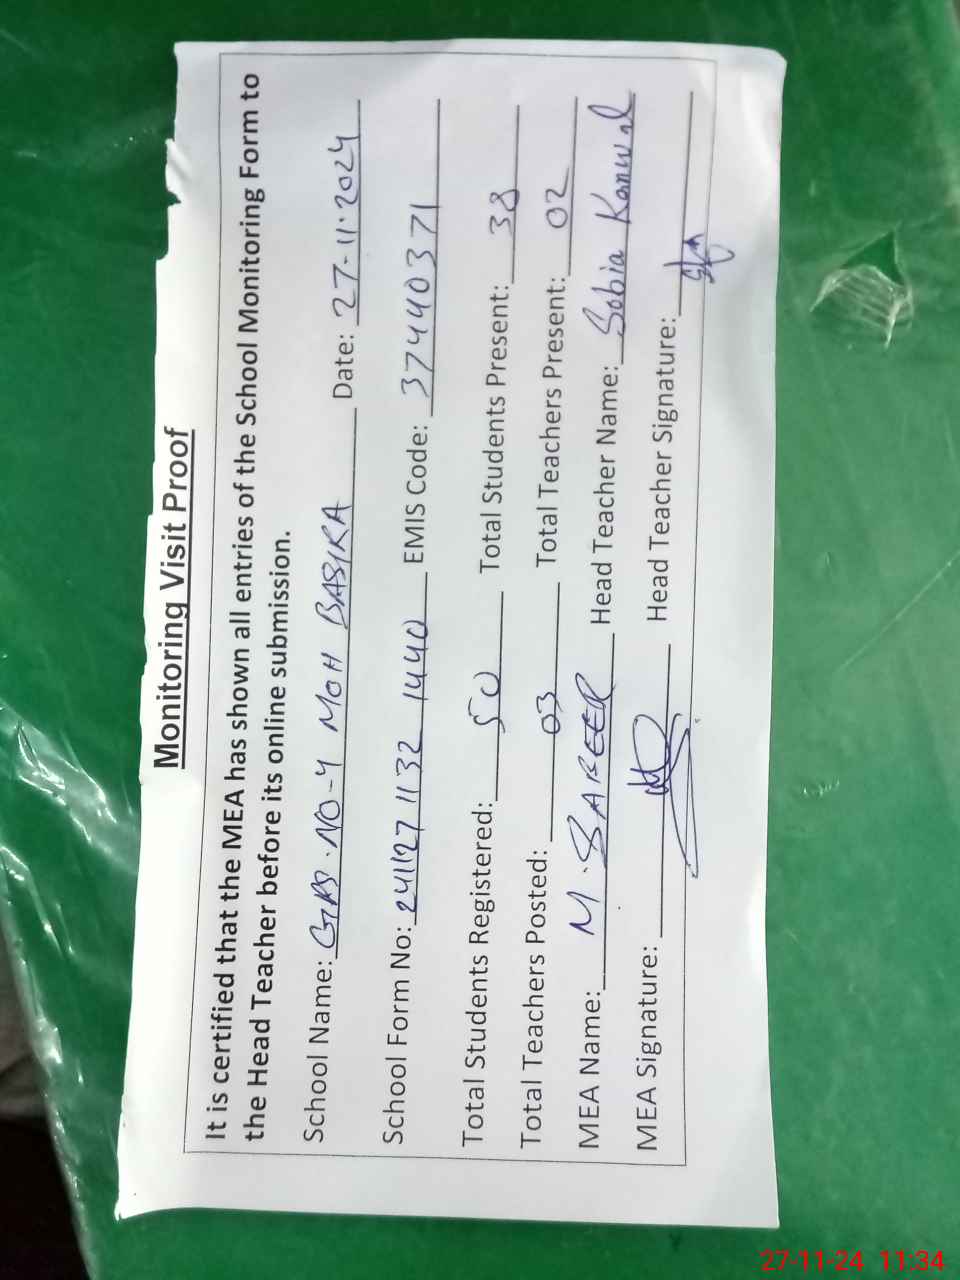 Monitoring Visit Proof
It is certified that the MEA has shown all entries of the School Monitoring Form to
the Head Teacher before its online submission.
School Name: GPS. NO-4 MOH BASIRA Date: 27-11-2024
School Form No: 241127 1132 1440 EMIS Code: 37440371
Total Students Registered: 50 Total Students Present: 38
Total Teachers Posted: 03 Total Teachers Present: 02
MEA Name: M. Head Teacher Name: Sobia Kanwal
MEA Signature: Head Teacher Signature:
27-11-24 11:34